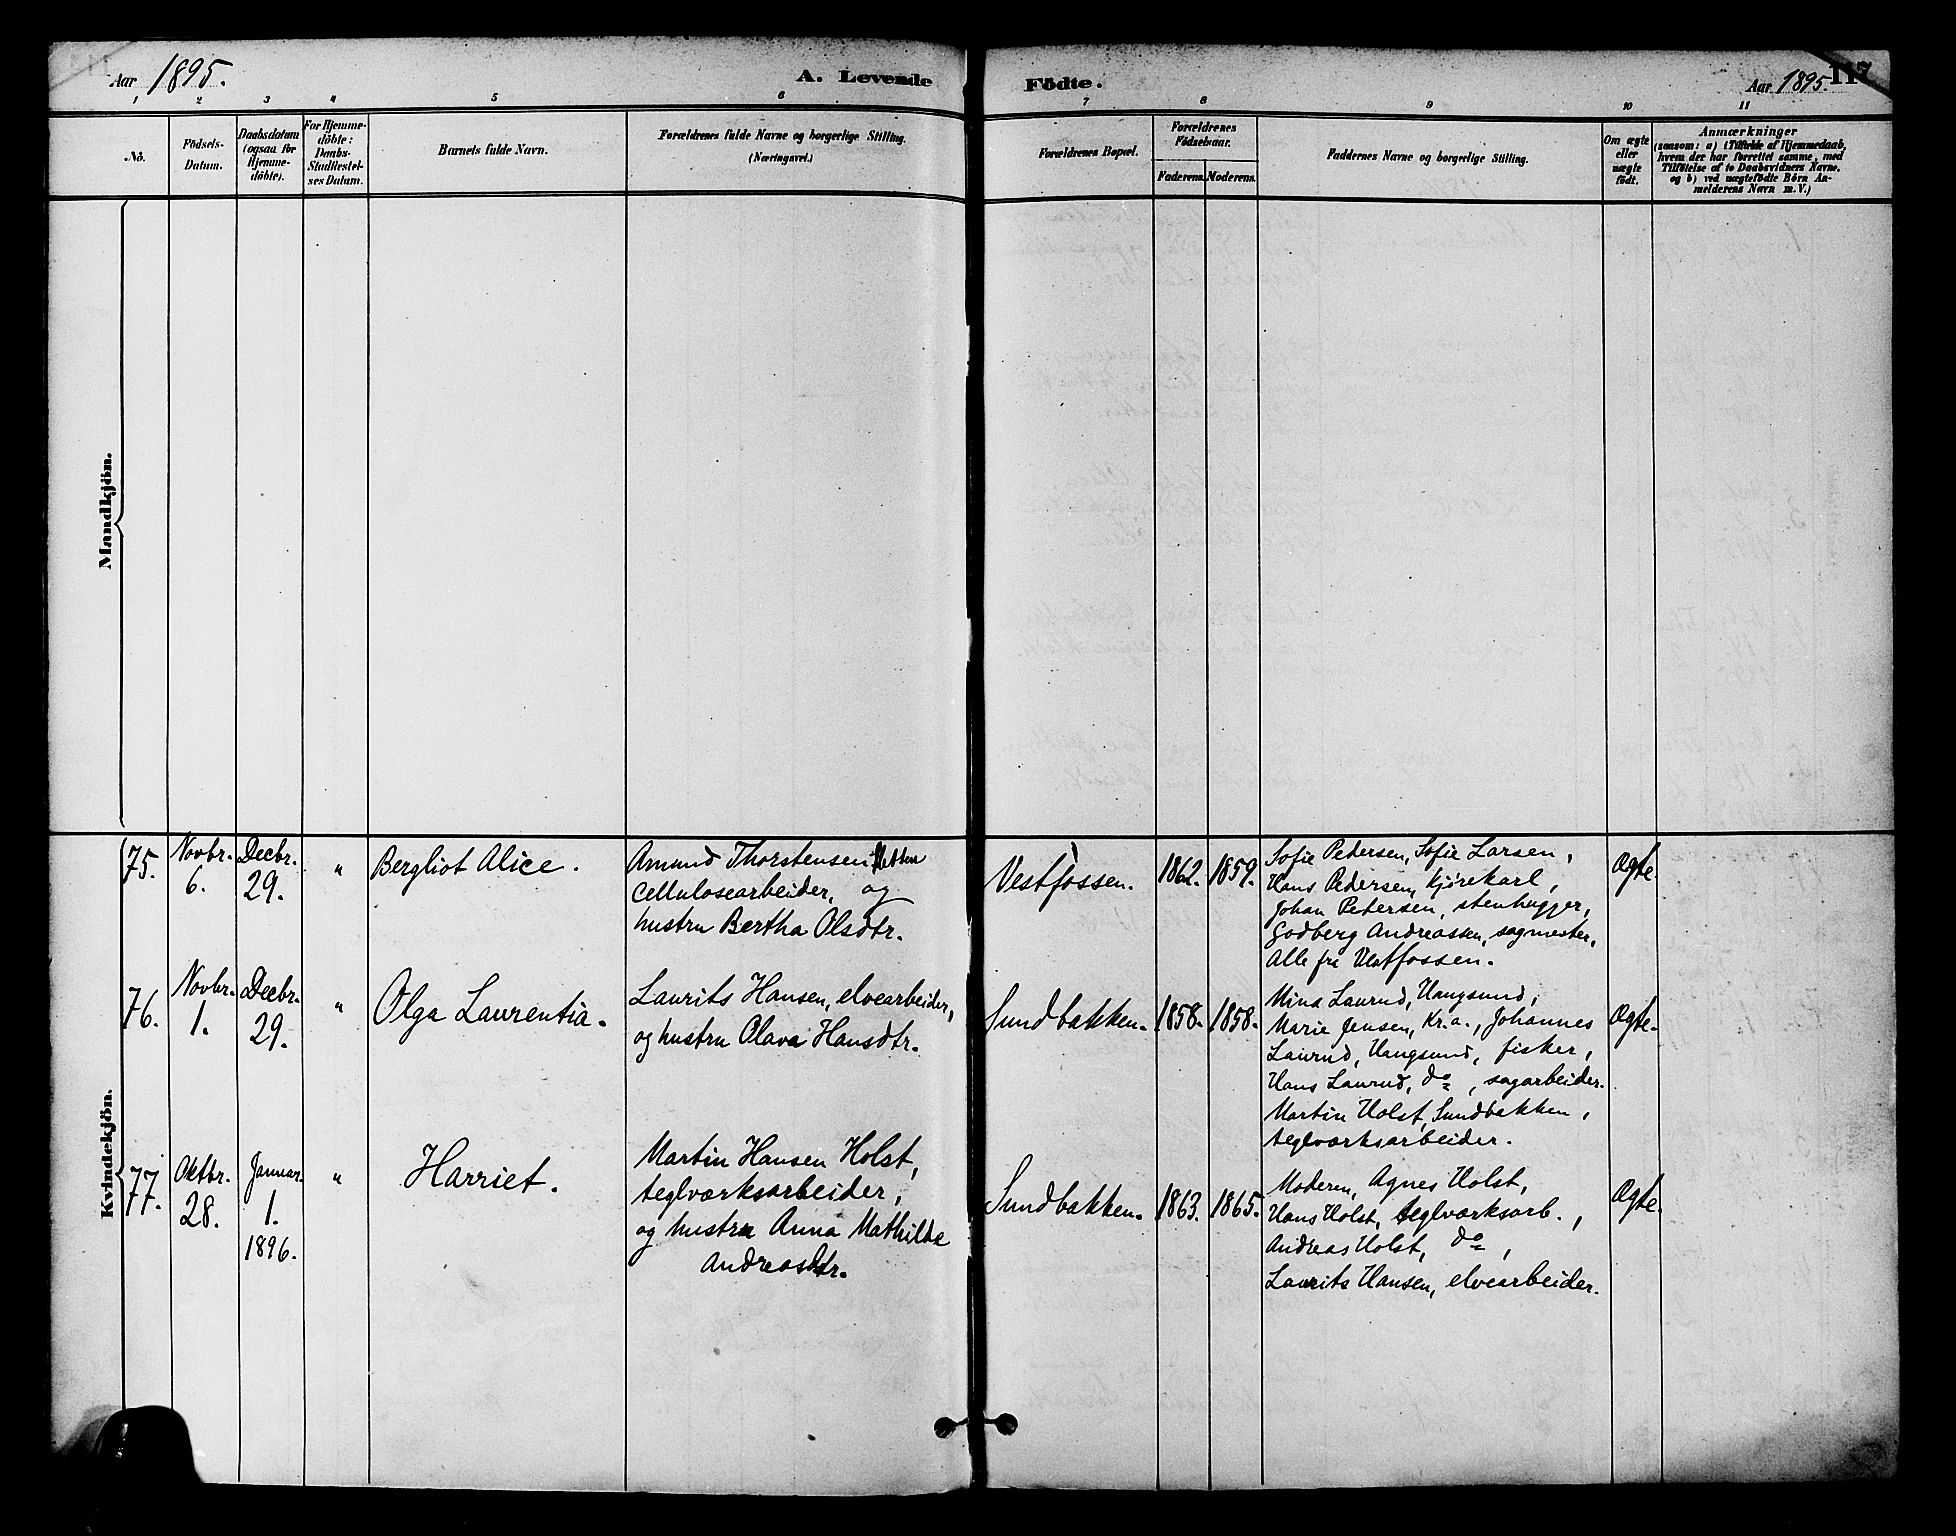 Aar 1895.
A. Levende Födte.
Aar 1895.
117
1 2 3 4 5 6 7 8 9 10 11
No.
Födsels-
Datum.
Daabsdatum
(ogsaa for
Hjemme-
döbte).
For Hjemme-
döbte:
Daabs-
Stadfæstel-
ses Datum.
Barnets fulde Navn.
Forældrenes fulde Navne og borgerlige Stilling.
(Næringsvei.)
Forældrenes Bopæl.
Forældrenes
Födselsaar.
Faderens. Moderens.
Faddernes Navne og borgerlige Stilling.
Om ægte
eller
uægte
födt.
Anmærkninger
(saasom: a) i Tilfælde af Hjemmedaab,
hvem der har forrettet samme, med
Tilföielse af to Daabsvidners Navne.
og b) ved uægtefödte Börn An-
melderens Navn m. V.)
Mandkjön.
Kvindekjön.
75.
Novbr.
6.
Decbr.
29.
"
Bergliot Alice.
Amund Thorstensen
Cellulosearbeider, og
hustru Bertha Olsdtr.
Vestfossen.
1862.
1859.
Sofie Pedersen, Sofie Larsen,
Hans Pedersen, kjørekarl,
Johan Petersen, stenhugger,
Godberg Andreassen, sagmester,
Alle fra Vestfossen.
Ægte.
76.
Novbr.
1.
Decbr.
29.
"
Olga Laurentia.
Laurits Hansen, elvearbeider,
og hustru Olava Hansdtr.
Sundbakken.
1858.
1858.
Mina Laurud, Vangsund,
Marie Jensen, Kr.a., Johannes
Laurud, Vangsund, fisker,
Hans Laurud, do, sagarbeider.
Martin Holst, Sundbakken,
teglværksarbeider.
Ægte.
77.
Oktbr.
28.
Januar.
1.
1896.
"
Harriet.
Martin Hansen Holst,
teglværksarbeider,
og hustru Anna Mathilde
Andreasdtr.
Sundbakken.
1863.
1865.
Moderen, Agnes Holst,
Hans Holst, teglværksarb.,
Andreas Holst, do,
Laurits Hansen, elvearbeider.
Ægte.